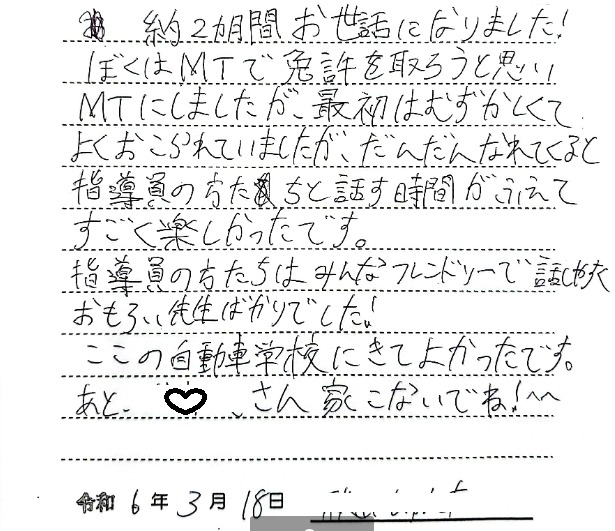 約2カ月間お世話になりました!
ぼくはMTで免許を取ろうと思い
MTにしましたが、最初はむずかしくて
よくおこられていましたが、だんだんなれてくると
指導員の方たちと話す時間がふえて
すごく楽しかったです。
指導員の方たちはみんなフレンドリーで話しやすく
おもろい先生ばかりでした!
ここの自動車学校にきてよかったです。
あと、♡、さん家こないでね!^^
令和6年3月18日